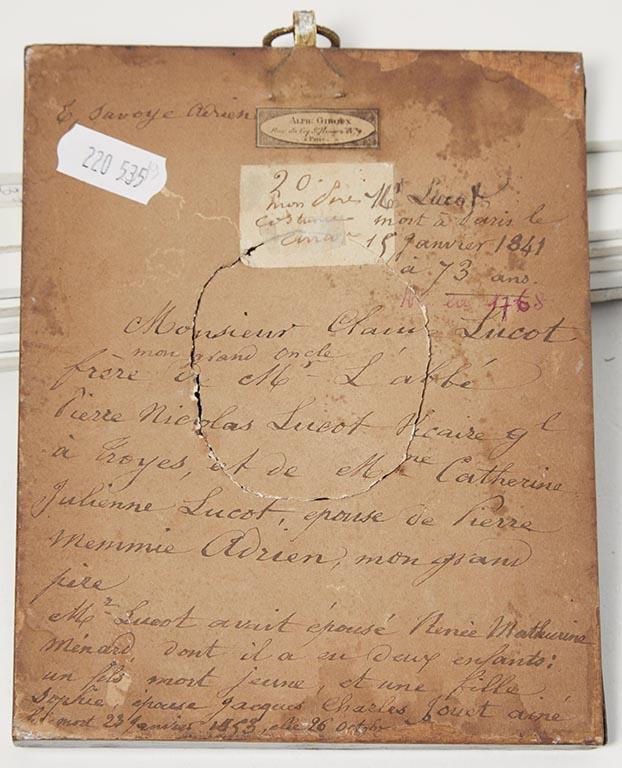 E. Savoye Adrien
ALPH. GIROUX
Rue du Coq St. Honoré No. 7
à Paris
220 535
20.
mon Père
costume
Mr Lucot
mort à Paris le
15 Janvier 1841
à 73 ans.
Né en 1768
Monsieur Claude Lucot
mon grand oncle
frère de Mr L'abbé
Pierre Nicolas Lucot Vicaire gl
à Troyes, et de Mme Catherine
Julienne Lucot, épouse de Pierre
Memmie Adrien, mon grand
père
Mr Lucot avait épousé Renée Mathurine
Ménard dont il a eu deux enfants:
un fils mort jeune, et une fille
Sophie, épouse Jacques Charles Jouet ainé
mort 23 Janvier 1853, elle 26 octobr